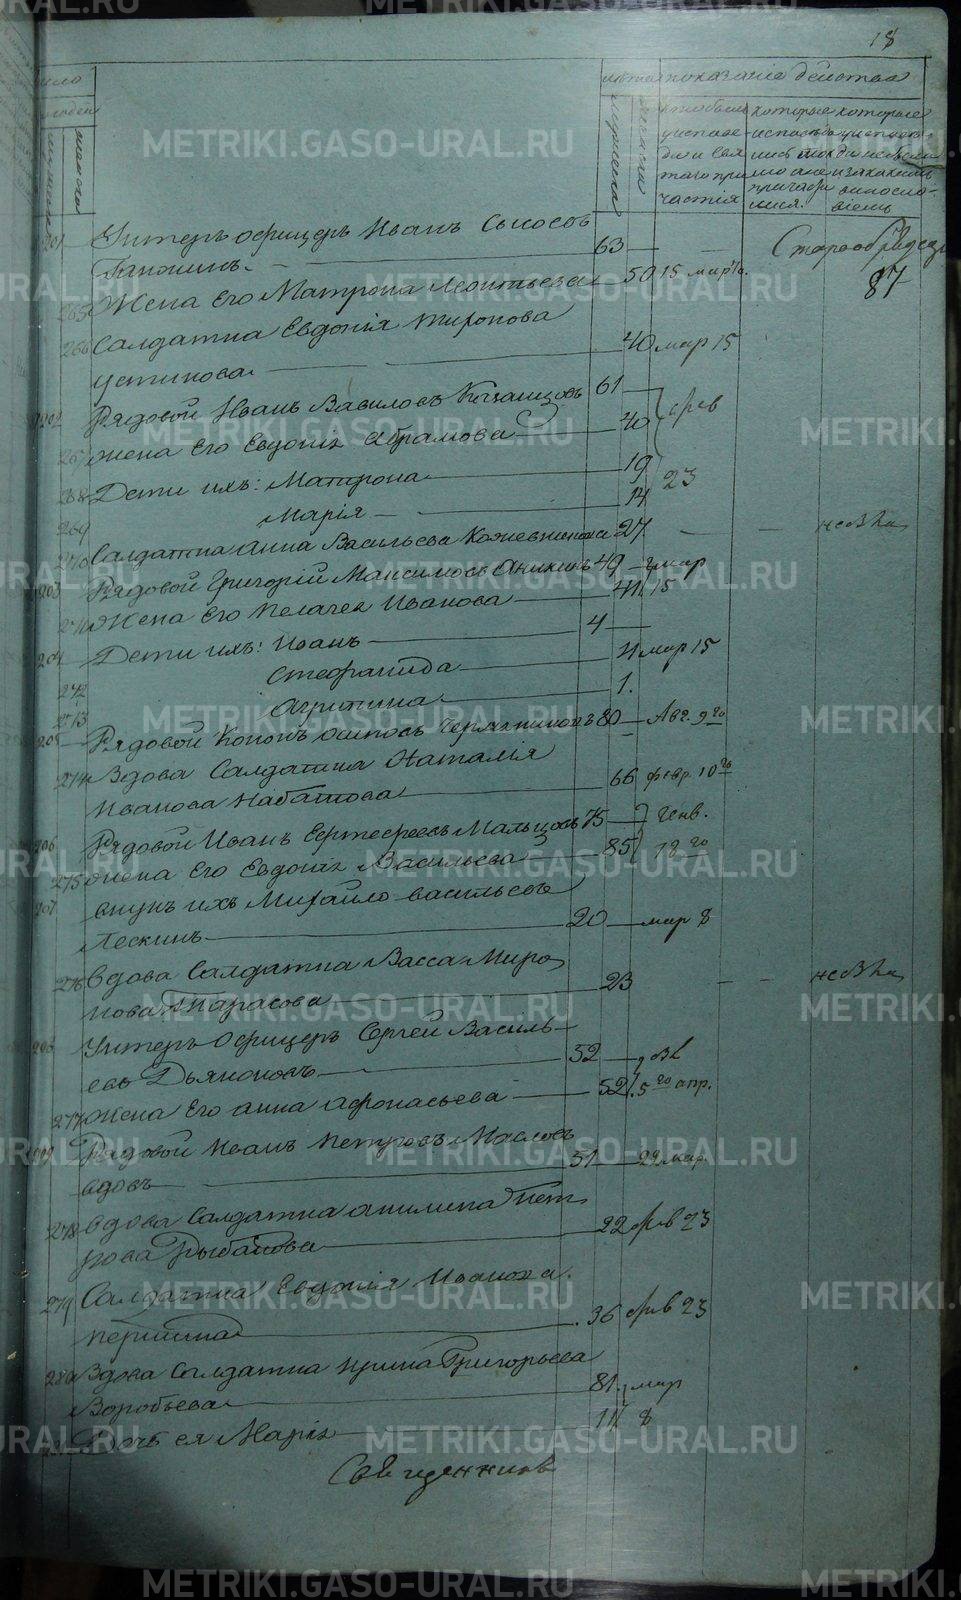 18
показанiе действа
мужеска
женска
кто были у исповеди и святаго причастiя
которые исповедались токмо а не причастились.
201 Унтеръ офицеръ Иванъ Сысоевъ
Гапошинъ. 63 Старообрядецъ
265 Жена Его Матрона Леонтьева 50 15 мар. 87
266 Солдатка Евдокiя Миронова
Устинова 40 мар 15
202 Рядовой Иванъ Вавиловъ Казанцовъ 61
267 жена Его Евдокiя Абрамова 40 фев
268 Дети ихъ: Матрона 19 23
269 Марiя 14
270 Солдатка Анна Васильева Кожевникова 27
203 Рядовой Григорiй Максимовъ Аникинъ 49 мар
271 Жена Его Пелагея Иванова 41 15
204 Дети ихъ: Иванъ 4
272 Стефанида 11 мар 15
273 Агрипина 1.
205 Рядовой Кононъ Осиповъ Черепниковъ 80 Авг. 9го
274 Вдова Солдатка Наталiя
Иванова Набатова 66 февр. 10го
206 Рядовой Иванъ Ерофеевъ Мальцовъ 75 Генв.
275 жена Его Евдокiя Васильева 85 12го
207 внукъ ихъ Михайло Васильевъ
Пескинъ 20 мар 8
276 Вдова Солдатка Васса Миро
нова Тарасова 23
208 Унтеръ Офицеръ Сергей Василь
евъ Дьяконовъ 52
277 Жена Его Анна Афонасьева 52 5го апр.
209 Рядовой Иванъ Петровъ Масловъ
вдовъ 51 29 мар.
278 Вдова Солдатка Акилина Пет
рова Рыбакова 22 фев 23
279 Солдатка Евдокiя Иванова
Першина 36 фев 23
280 Вдова Солдатка Ирина Григорьева
Воробьева 81 мар
Дочь ея Марiя 11 8
Священникъ
METRIKI.GASO-URAL.RU